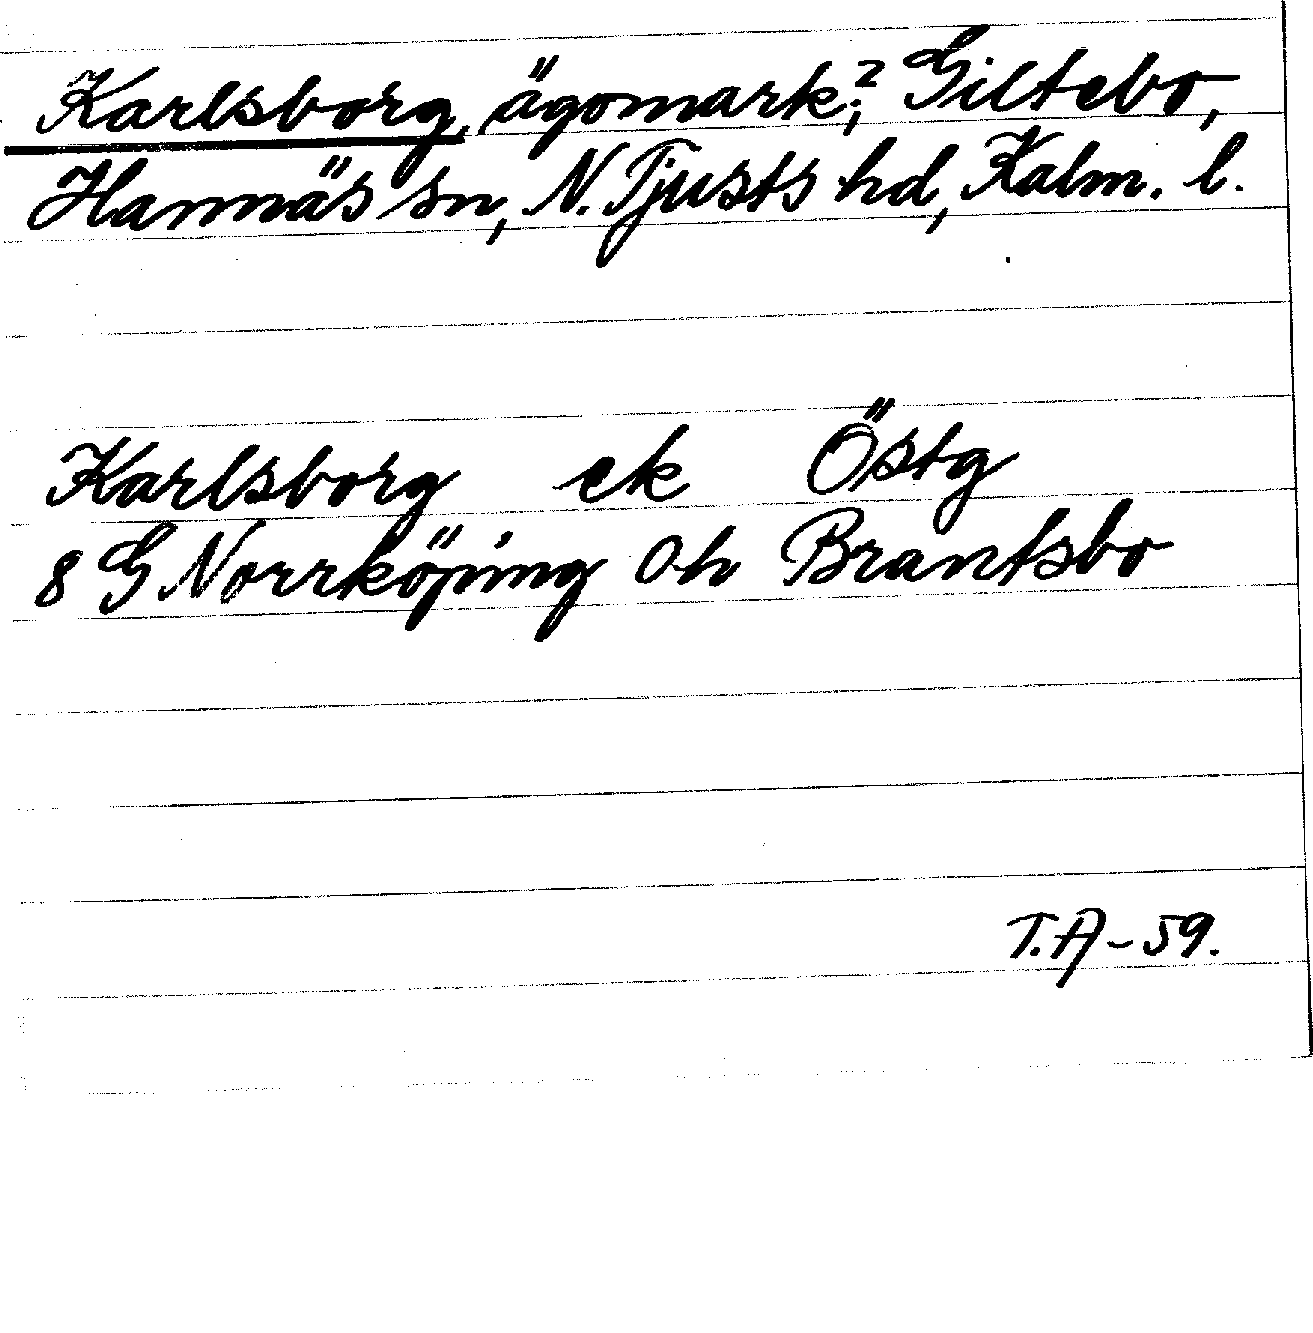 Karlsborg, ägomark;² Giltebo,
Hannäs sn, N. Tjusts hd, Kalm. l.
Karlsborg ek Östg
8 G Norrköping Oh Brantsbo
T.A-59.